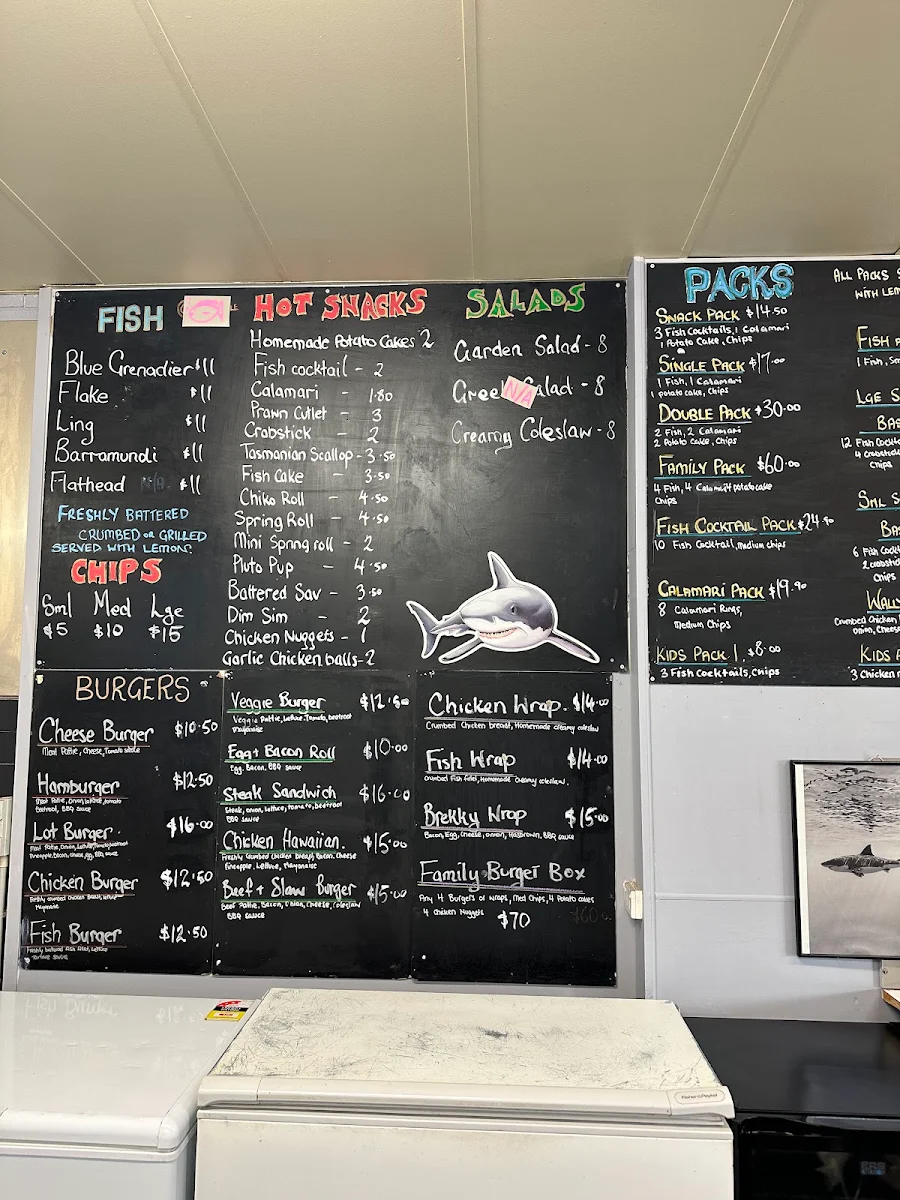 FISH
Blue Grenadier $11
Flake $11
Ling $11
Barramundi $11
Flathead N/A $11
FRESHLY BATTERED
CRUMBED OR GRILLED
SERVED WITH LEMON
CHIPS
Sml Med Lge
$5 $10 $15
HOT SNACKS
Homemade Potato Cakes 2
Fish cocktail - 2
Calamari - 1.80
Prawn Cutlet - 3
Crabstick - 2
Tasmanian Scallop - 3.50
Fish Cake - 3.50
Chiko Roll - 4.50
Spring Roll - 4.50
Mini Spring roll - 2
Pluto Pup - 4.50
Battered Sav - 3.50
Dim Sim - 2
Chicken Nuggets - 1
Garlic Chicken balls - 2
SALADS
Garden Salad - 8
Greek N/A Salad - 8
Creamy Coleslaw - 8
BURGERS
Cheese Burger $10.50
Meat Pattie, Cheese, Tomato sauce
Hamburger $12.50
Meat Pattie, Onion, lettuce, tomato
Beetroot, BBQ sauce
Lot Burger. $16.00
Pineapple, bacon, cheese, Egg, BBQ sauce
Chicken Burger $12.50
Fish Burger $12.50
Freshly battered fish fillet, Lettuce
Tartare sauce
Veggie Burger $12.50
Veggie Pattie, Lettuce, Tomato, beetroot
Mayonaise
Egg + Bacon Roll $10.00
Egg, Bacon, BBQ sauce
Steak Sandwich $16.00
Steak, onion, Lettuce, tomato, beetroot
BBQ sauce
Chicken Hawaiian. $15.00
Freshly Crumbed Chicken breast, Bacon, Cheese
Pineapple, Lettuce, Mayonaise
Beef + Slaw Burger $15.00
Beef Pattie, Bacon, Onion, Cheese, Coleslaw
BBQ sauce
Chicken Wrap. $14.00
Crumbed Chicken breast, Homemade creamy coleslaw
Fish Wrap $14.00
Crumbed Fish fillet, Homemade creamy coleslaw.
Brekky Wrap $15.00
Bacon, Egg, Cheese, onion, Hasbrown, BBQ sauce
Family Burger Box
Any 4 Burgers or wraps, Med Chips, 4 Potato cakes
4 Chicken Nuggets $70 $60
PACKS
SNACK PACK $14.50
3 Fish Cocktails, 1 Calamari
1 Potato Cake, Chips
SINGLE PACK $17.00
1 Fish, 1 Calamari
1 potato cake, Chips
DOUBLE PACK $30.00
2 Fish, 2 Calamari
2 Potato Cake, Chips
FAMILY PACK $60.00
4 Fish, 4 Calamari 4 potato cake
Chips
FISH COCKTAIL PACK $24.90
10 Fish Cocktail, Medium chips
CALAMARI PACK $19.90
8 Calamari Rings,
Medium Chips
KIDS PACK 1. $8.00
3 Fish Cocktails, Chips
ALL PACKS
WITH LEM
FISH
1 Fish,
LGE S
BAS
12 Fish Cockt
4 Crabstick
Chips
SML S
BAS
6 Fish Cockt
2 crabstic
Chips
WALLY
Crumbed Chicken
Onion, Cheese
KIDS P
3 Chicken
Fisher&Paykel